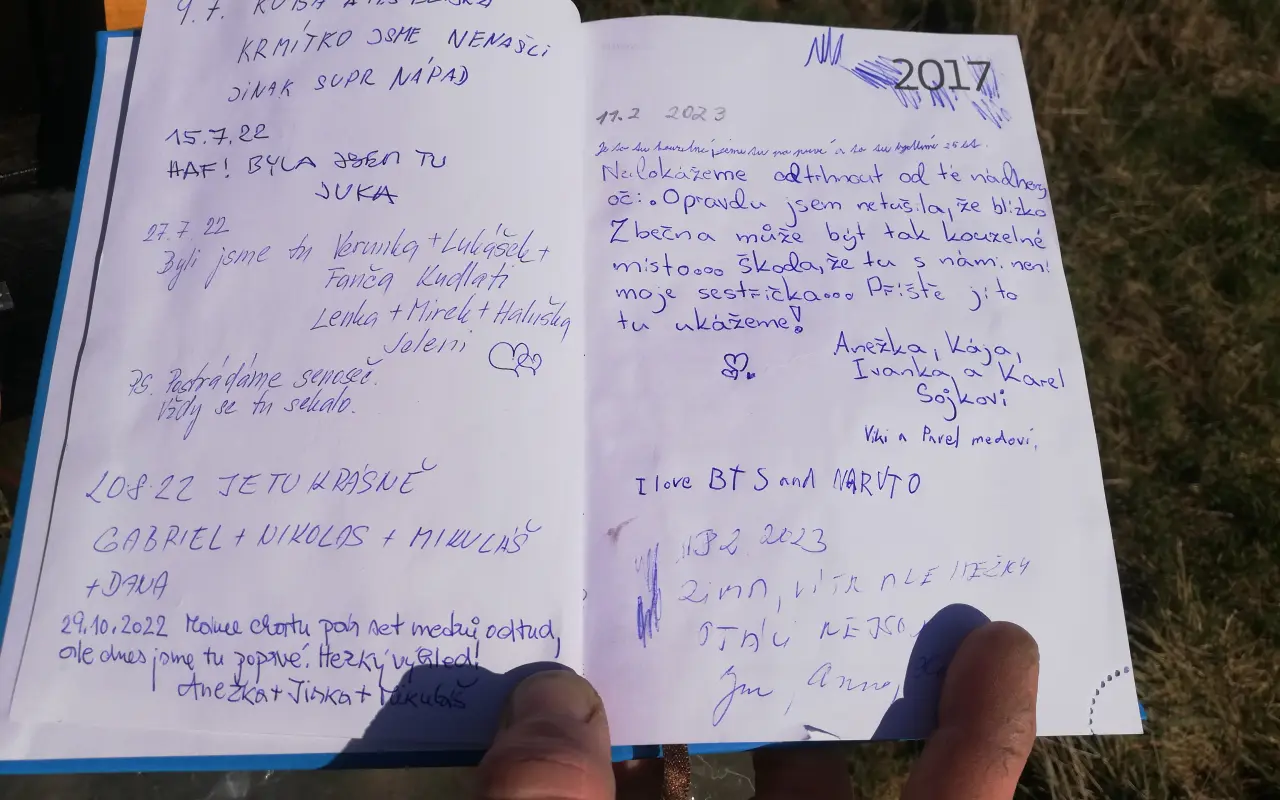 9.7. KUBA A
KRMÍTKO JSME NENAŠLI
JINAK SUPR NÁPAD
15.7.22
HAF! BYLA JSEM TU
JUKA
27.7.22
Byli jsme tu Verunka + Lukášek +
Fanča Kudlati
Lenka + Mirek + Haluška
Jeleni
PS. Postrádáme senoseč.
Vždy se tu sekalo.
20.8.22 JE TU KRÁSNĚ
GABRIEL + NIKOLAS + MIKULÁŠ
+ DANA
29.10.2022 Máme chatu pár set metrů odtud,
ale dnes jsme tu poprvé. Hezký výhled!
Anežka + Jirka + Mikuláš
2017
11.2 2023
Nedokážeme odtrhnout od té nádhery
oči. Opravdu jsem netušila, že blízko
Zbečna může být tak kouzelné
místo... škoda, že tu s námi není
moje sestřička... Příště jí to
tu ukážeme!
Anežka, Kája,
Ivanka a Karel
Sojkovi
Viki a Pavel medovi,
I love BTS and NARUTO
2. 2023
ZIMA, VÍTR ALE HEZKY